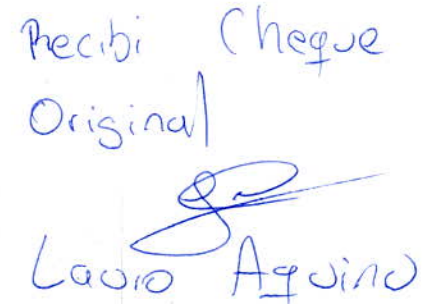 Recibi Cheque
Original
Lauro Aquino